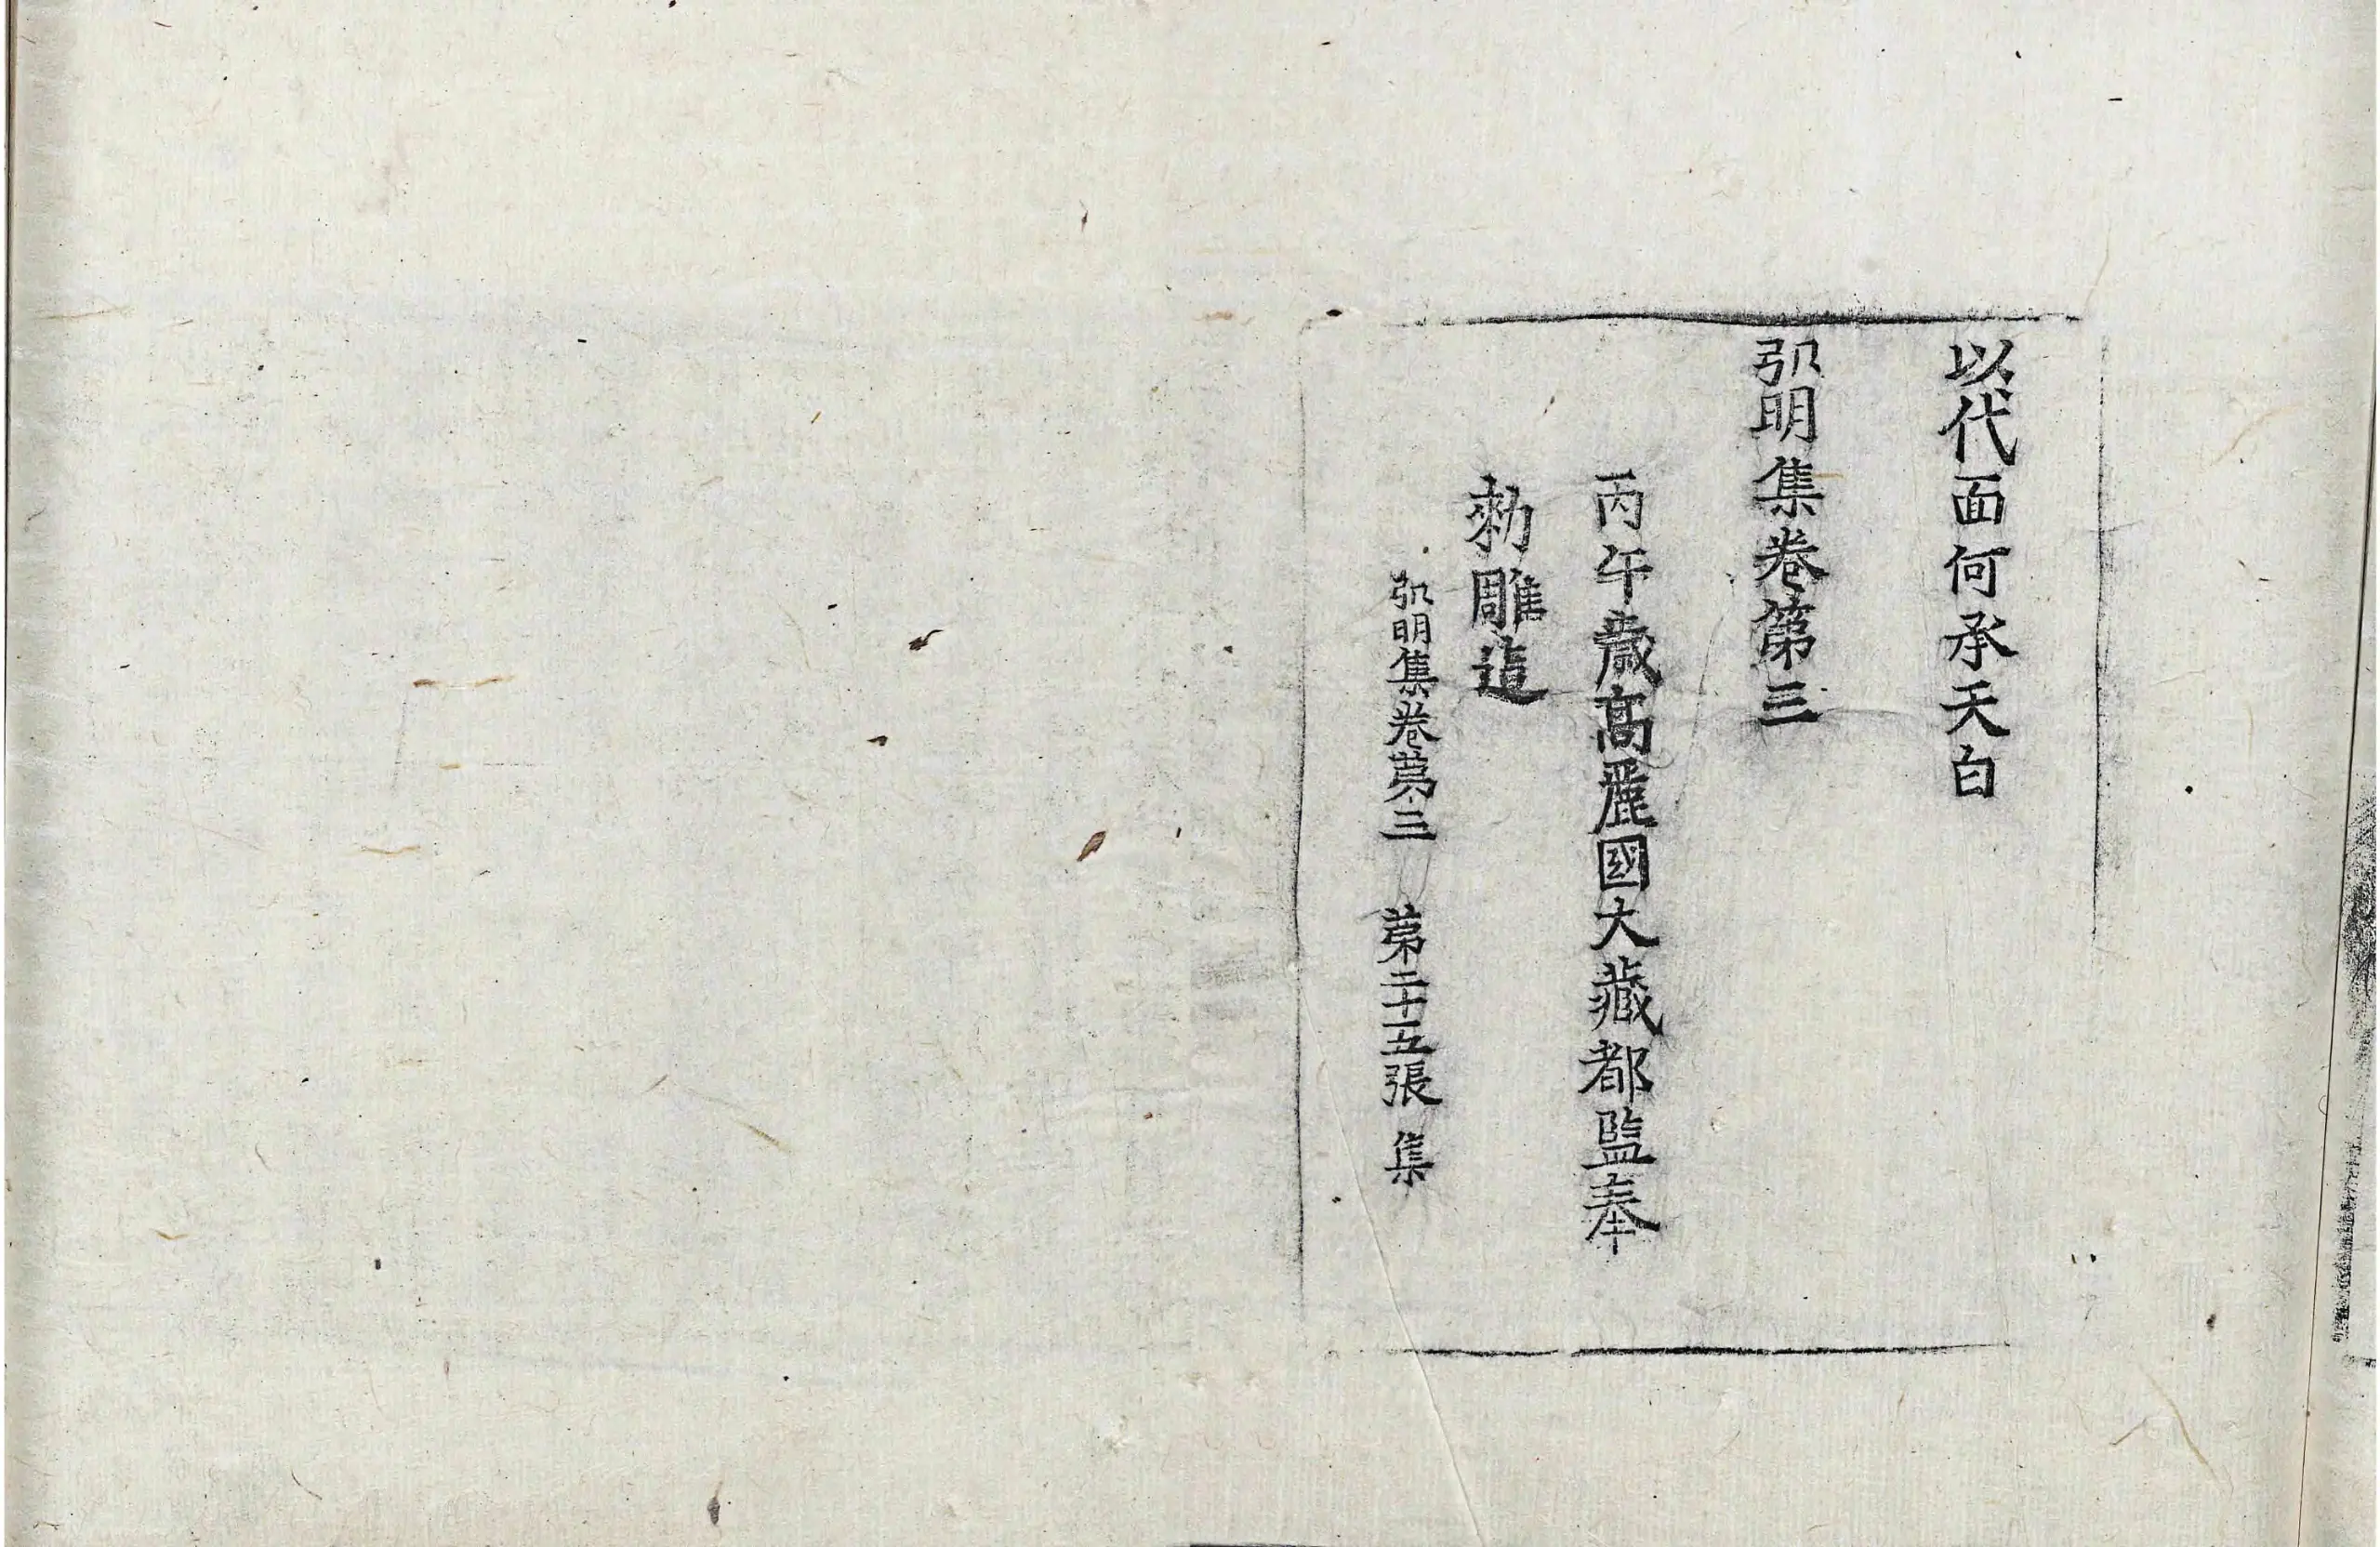 以代面何承天白
弘明集卷第三
丙午歲高麗國大藏都監奉
勑雕造
弘明集卷第三 第二十五張 集